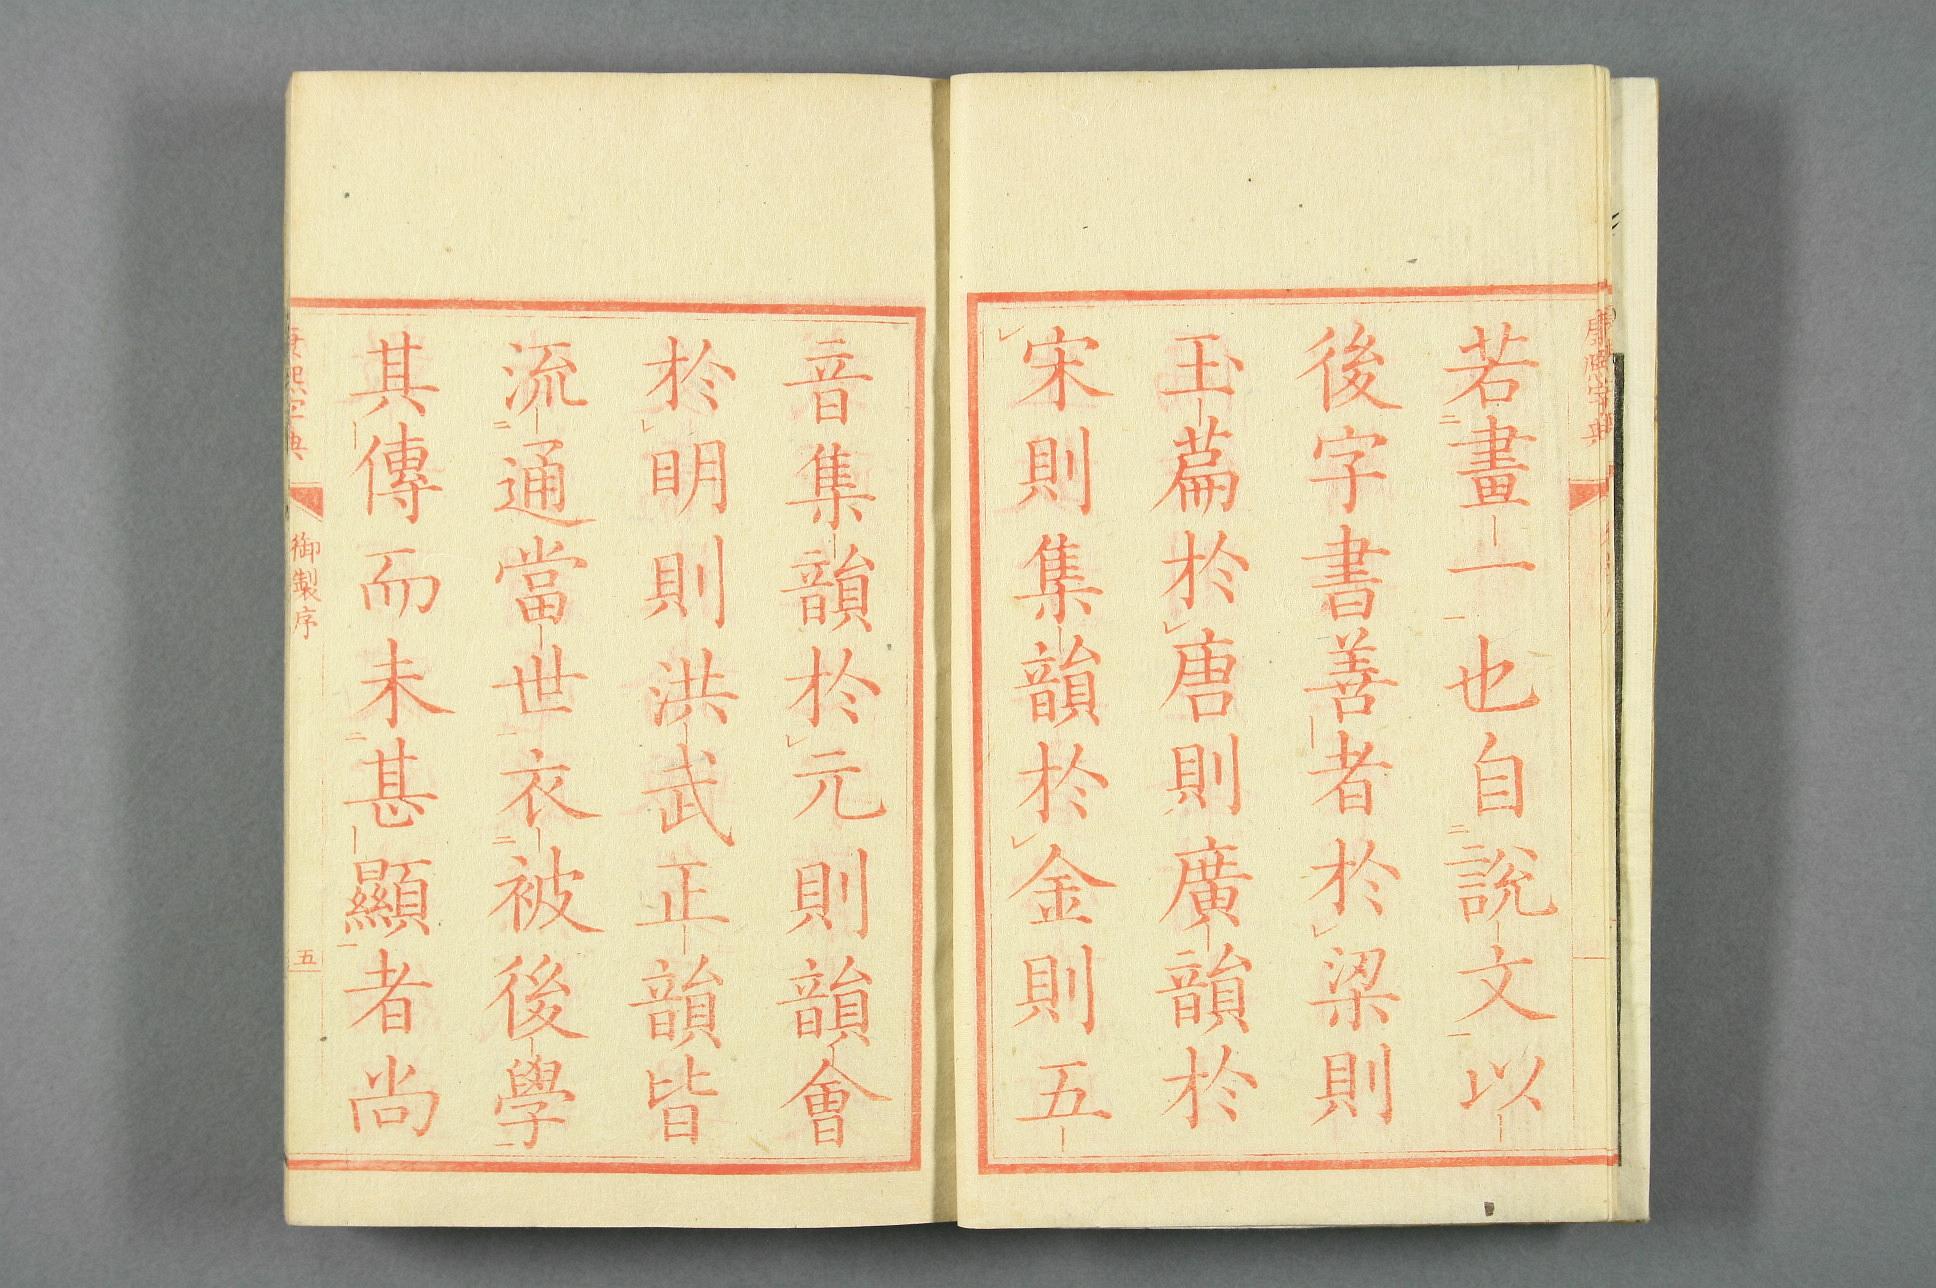 若畫一也自說文以
後字書善者於梁則
玉篇於唐則廣韻於
宋則集韻於金則五
音集韻於元則韻會
於明則洪武正韻皆
流通當世衣被後學
其傳而未甚顯者尚
康熙字典
御製序
五